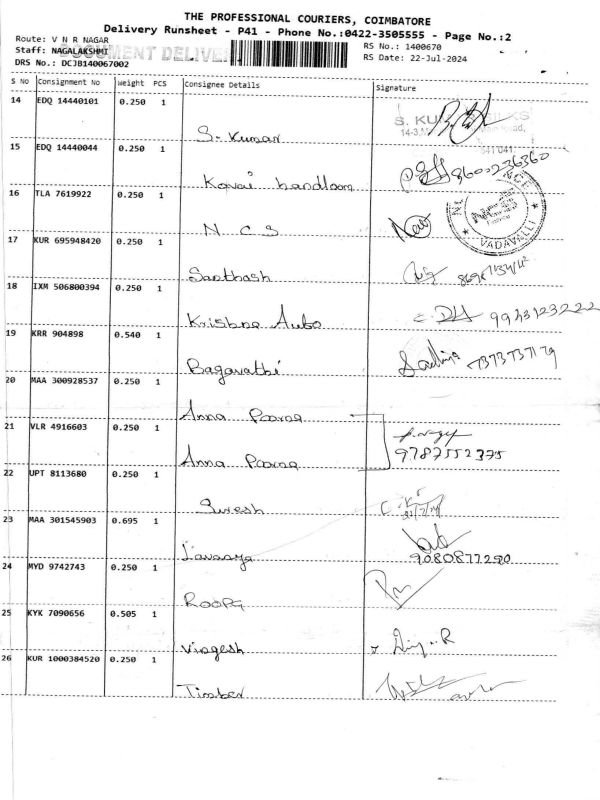 THE PROFESSIONAL COURIERS, COIMBATORE
Delivery Runsheet - P41 - Phone No.:0422-3505555 - Page No.:2
Route: V N R NAGAR
RS No.: 1400670
Staff: NAGALAKSHMI
DOCUMENT DELIVE
RS Date: 22-Jul-2024
DRS No.: DCJB140067002
S No Consignment No Weight PCS Consignee Details Signature
14 EDQ 14440101 0.250 1
S. KU
14-3,
641 041.
S. Kumar
15 EDQ 14440044 0.250 1
8600236360
Kovai handloom
16 TLA 7619922 0.250 1
VADAVALLI
N C S
17 KUR 695948420 0.250 1
Santhosh
18 IXM 506800394 0.250 1
Krishna Auto
9943123222
19 KRR 904898 0.540 1
Bagavathi
7373737179
20 MAA 300928537 0.250 1
Anna Poorna
21 VLR 4916603 0.250 1
Anna Poorna
9787552375
22 UPT 8113680 0.250 1
Suresh
23 MAA 301545903 0.695 1
Lavanya
9080877290
24 MYD 9742743 0.250 1
Roopa
25 KYK 7090656 0.505 1
Viogesh
26 KUR 1000384520 0.250 1
Timber